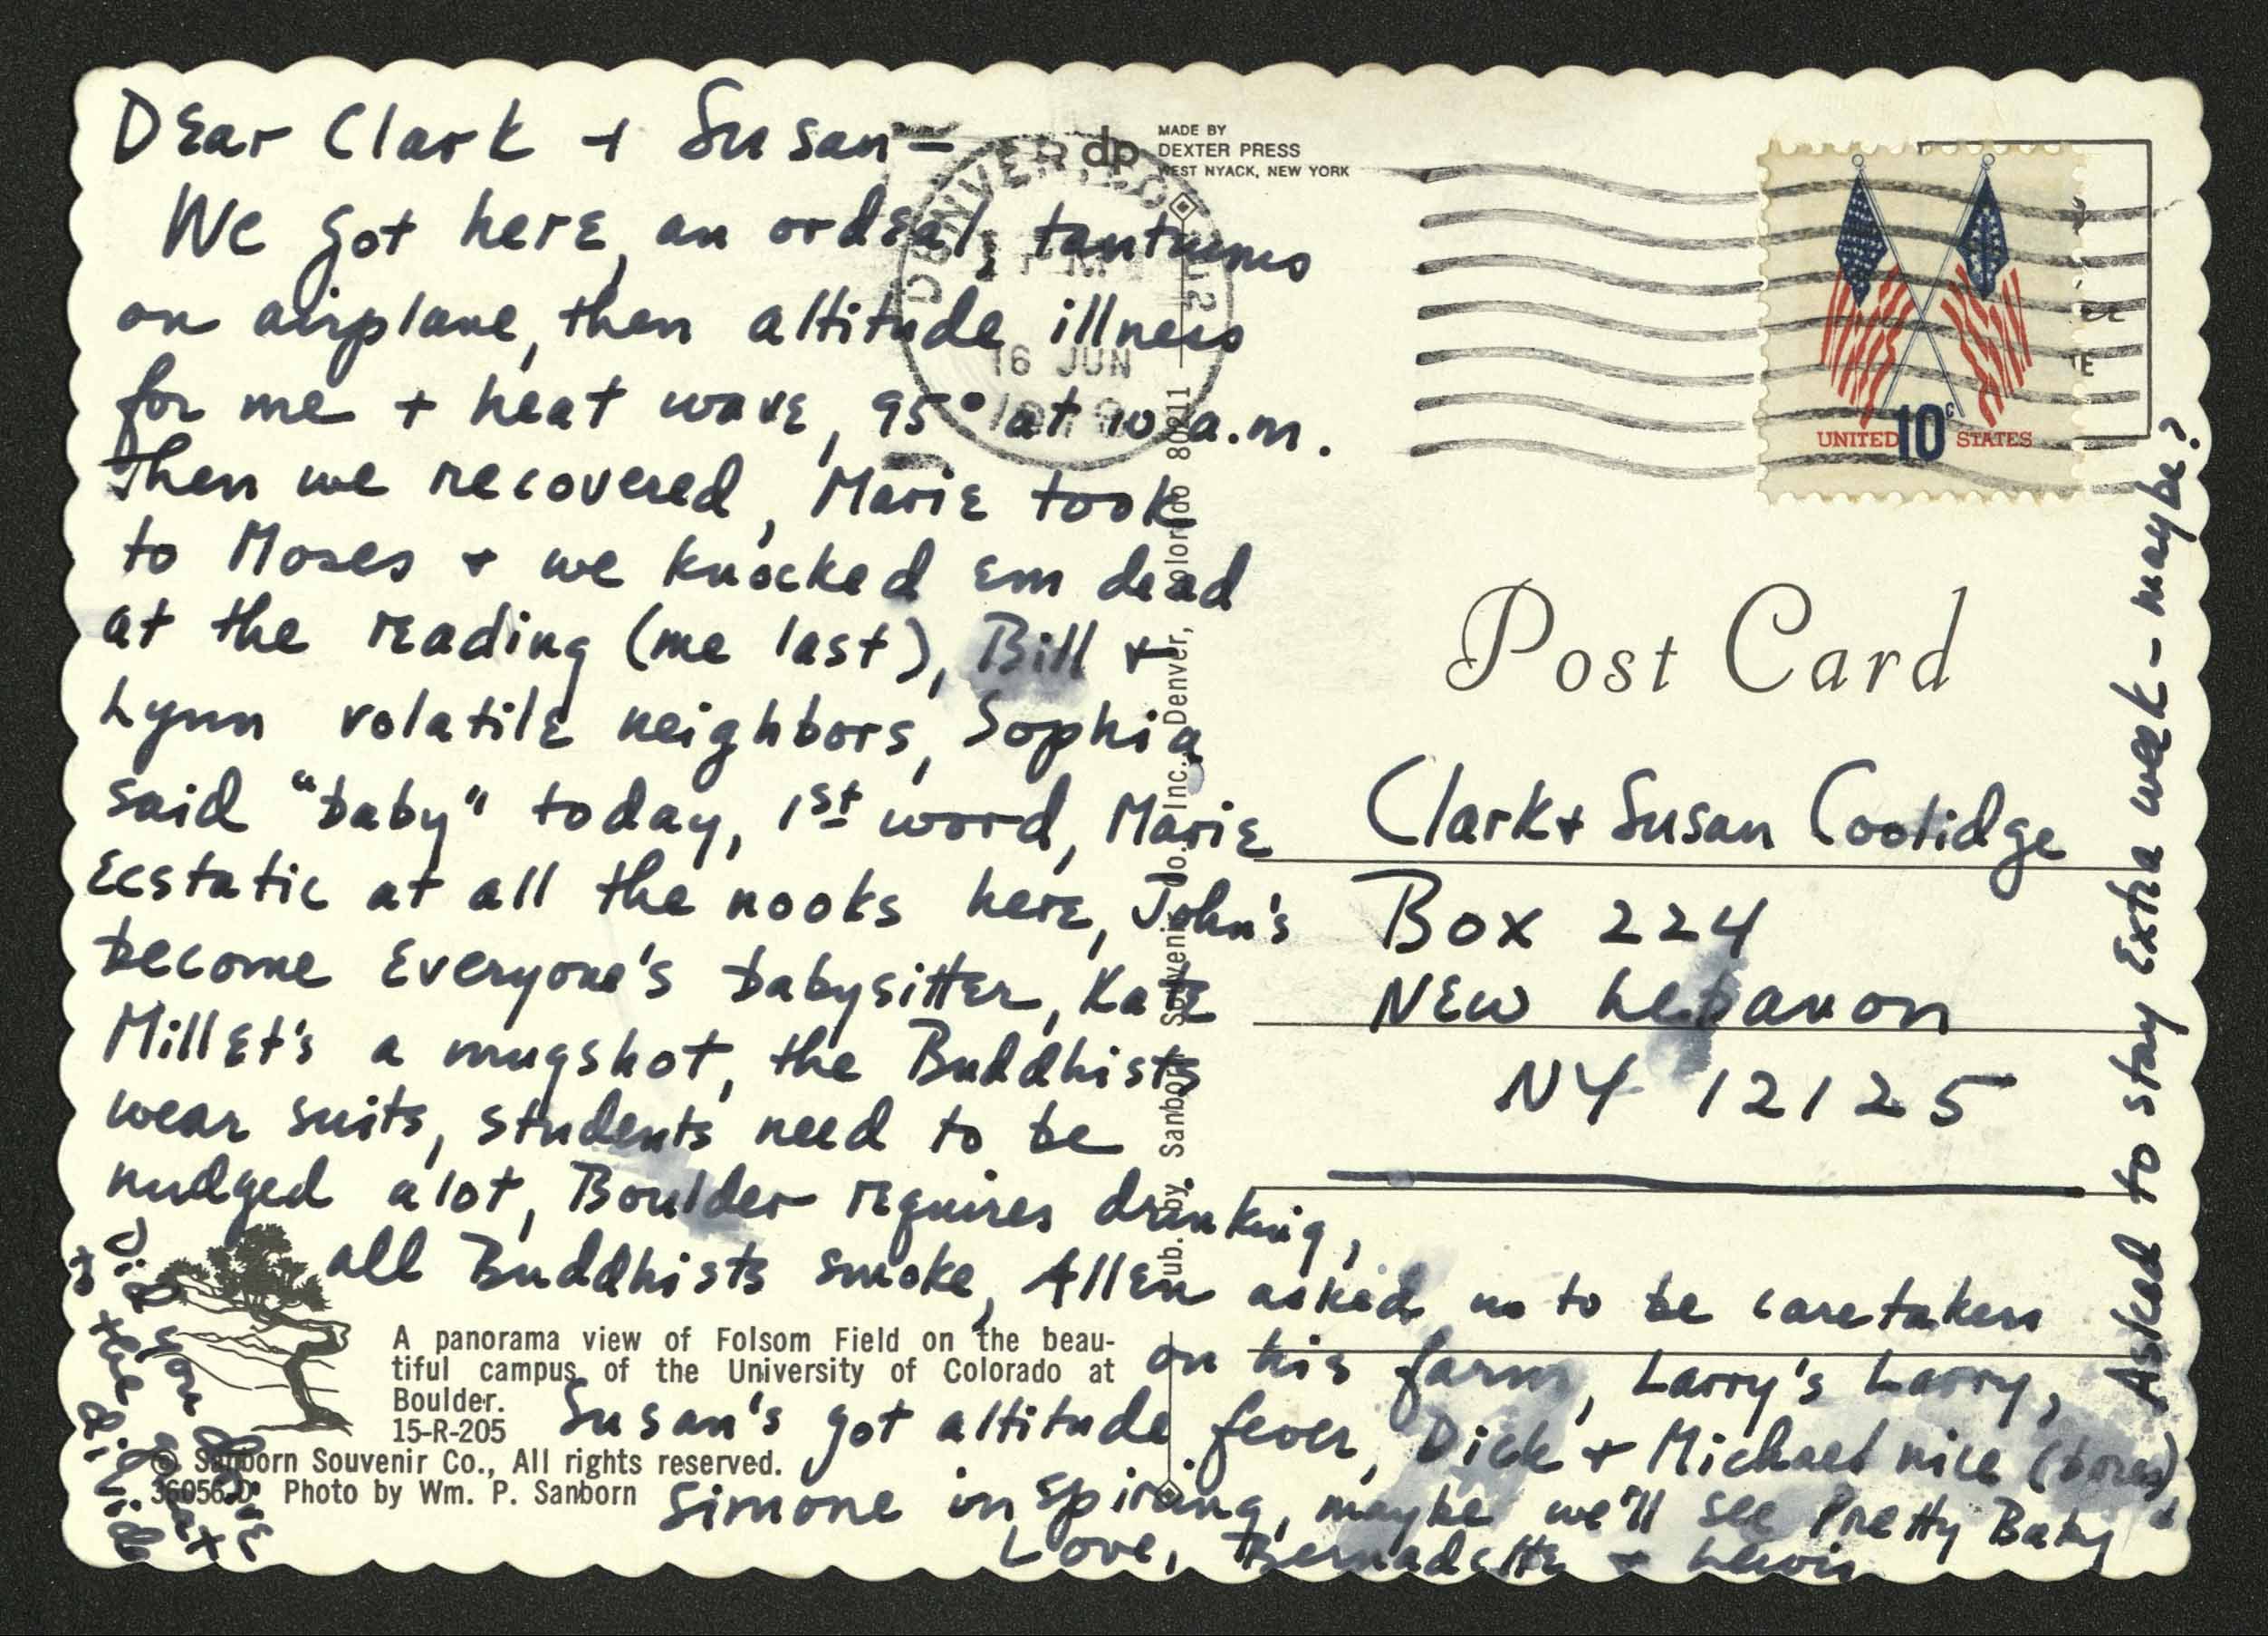 Dear Clark + Susan—
We got here, an ordeal, tantrums
on airplane, then altitude illness
for me + heat wave, 95° at 10 a.m.
Then we recovered, Marie took
to Moses + we knocked em dead
at the reading (me last), Bill +
Lynn volatile neighbors, Sophia
said "baby" today, 1st word, Marie
ecstatic at all the nooks here, John's
become everyone's babysitter, Kate
Millet's a mugshot, the Buddhists
wear suits, students need to be
nudged a lot, Boulder requires drinking,
all Buddhists smoke, Allen asked us to be caretakers
on his farm, Larry's Larry,
Susan's got altitude fever, Dick + Michael nice (bores)
Simone inspiring, maybe we'll see Pretty Baby +
Love, Bernadette + Lewis
Did you leave
to the
Asked to stay extra week - maybe?
DENVER, CO
PM
16 JUN
dp
MADE BY
DEXTER PRESS
WEST NYACK, NEW YORK
UNITED 10c STATES
Post Card
Clark + Susan Coolidge
Box 224
New Lebanon
NY 12125
Pub. by Sanborn Souvenir Co. Inc. Denver, Colorado 80211
A panorama view of Folsom Field on the beau-
tiful campus of the University of Colorado at
Boulder.
15-R-205
© Sanborn Souvenir Co., All rights reserved.
36056-D Photo by Wm. P. Sanborn